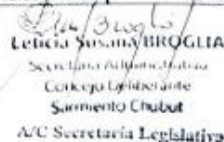 Leticia Susana BROGLIA
Secretaria Administrativa
Concejo Deliberante
Sarmiento Chubut
A/C Secretaría Legislativa